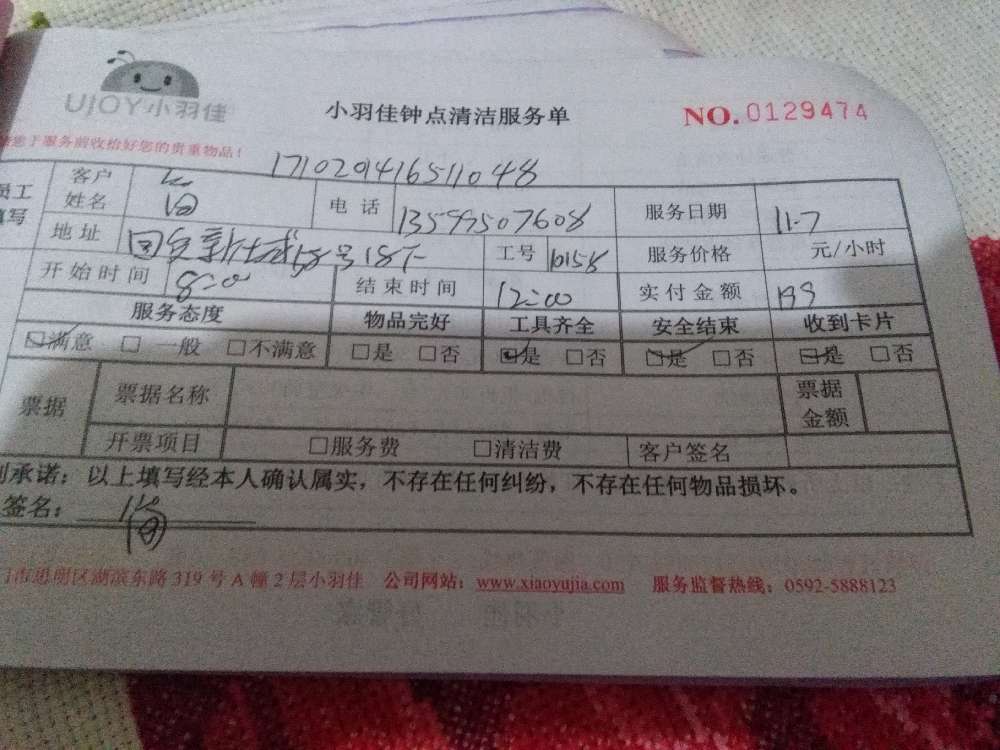 UJOY小羽佳
小羽佳钟点清洁服务单
NO.0129474
于服务前收给好您的贵重物品!
171029416511048
员工填写
客户姓名 简
电话 13599507608
服务日期 11.7
地址 新城58号18下
工号 10158
服务价格 元/小时
开始时间 8:00
结束时间 12:00
实付金额 199
服务态度 物品完好 工具齐全 安全结束 收到卡片
☑满意 □一般 □不满意 □是 □否 ☑是 □否 ☑是 □否 ☑是 □否
票据 票据名称 票据金额
开票项目 □服务费 □清洁费 客户签名
承诺:以上填写经本人确认属实,不存在任何纠纷,不存在任何物品损坏。
签名: 简
市思明区湖滨东路319号A幢2层小羽佳 公司网站:www.xiaoyujia.com 服务监督热线:0592-5888123